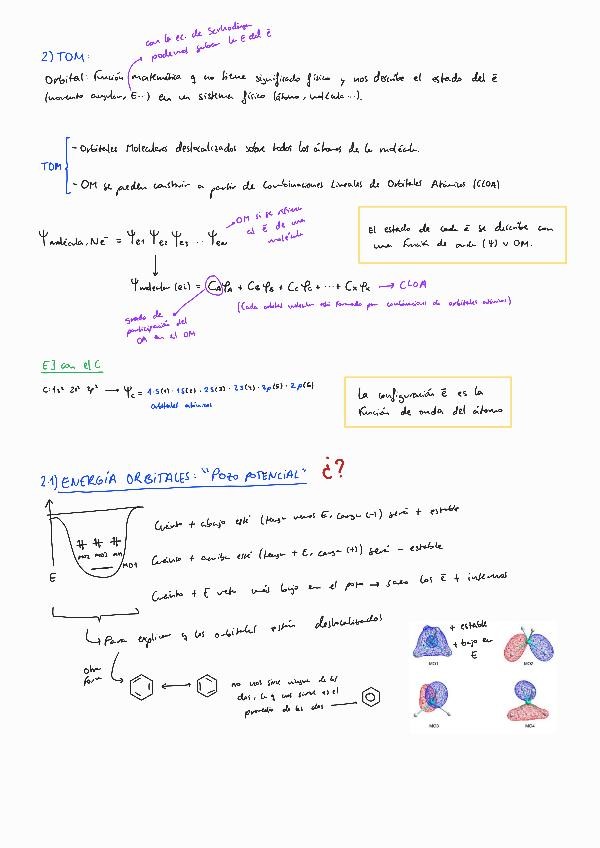 con la ec. de Schrödinger
podemos saber la E del ē
2) TOM:
Orbital: función matemática q no tiene significado físico y nos describe el estado del ē
(momento angular, E...) en un sistema físico (átomo, molécula...).
TOM
- Orbitales Moleculares deslocalizados sobre todos los átomos de la molécula.
- OM se pueden construir a partir de Combinaciones Lineales de Orbitales Atómicos (CLOA)
OM si se refiere
al ē de una
molécula
Ψmolécula, Ne⁻ = Ψe1 Ψe2 Ψe3 ... Ψen
El estado de cada ē se describe con
una función de onda (Ψ) u OM.
Ψmolecular (ei) = CAφA + CBφB + CCφC + ... + CXφX → CLOA
(Cada orbital molecular está formado por combinaciones de orbitales atómicos)
grado de
participación del
OA en el OM
EJ con el C
C: 1s² 2s² 2p² → Ψc = 1s(1) · 1s(2) · 2s(3) · 2s(4) · 2p(5) · 2p(6)
orbitales atómicos
La configuración ē es la
función de onda del átomo
2.1) ENERGÍA ORBITALES: "POZO POTENCIAL" ¿?
Cuánto + abajo esté (tenga menos E, carga (-)) será + estable
MO2 MO3 MO4
MO1
E
Cuánto + arriba esté (tenga + E, carga (+)) será - estable
Cuánto + E veto más bajo en el pozo → saco los ē + internos
Para explicar q los orbitales están deslocalizados
Otra
forma
no nos sirve ninguna de las
dos, lo q nos sirve es el
promedio de las dos
+ estable
+ bajo en
E
MO1
MO2
MO3
MO4